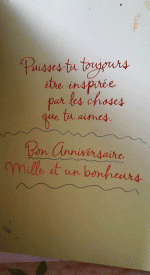 Puisses-tu toujours
être inspirée
par les choses
que tu aimes.
Bon Anniversaire
Mille et un bonheurs